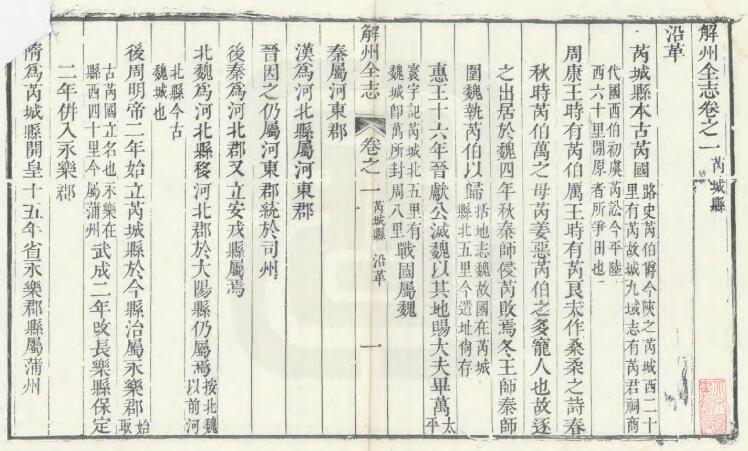 解州全志卷之一 芮城縣
沿革
芮城縣本古芮國 路史芮伯爵今陜之芮城西二十
里有芮故城九域志有芮君祠商
代國西伯初虞芮訟今平陸
西六十里閒原者所爭田也
周康王時有芮伯厲王時有芮良夫作桑柔之詩春
秋時芮伯萬之母芮姜惡芮伯之多寵人也故逐
之出居於魏四年秋秦師侵芮敗焉冬王師秦師
圍魏執芮伯以歸 括地志魏故國在芮城
縣北五里今遺址尚存
惠王十六年晉獻公滅魏以其地賜大夫畢萬 太
平
寰宇記芮城北五里有
魏城卽萬所封周八里 戰國屬魏
解州全志 卷之一 芮城縣 沿革 一
秦屬河東郡
漢爲河北縣屬河東郡
晉因之仍屬河東郡統於司州
後秦爲河北郡又立安戎縣屬焉
北魏爲河北縣移河北郡於大陽縣仍屬焉 按北魏
以前河
北縣今古
魏城也
後周明帝二年始立芮城縣於今縣治屬永樂郡 始
取
古芮國立名也永樂在
縣西四十里今屬蒲州 武成二年改長樂縣保定
二年併入永樂郡
隋爲芮城縣開皇十五年省永樂郡縣屬蒲州